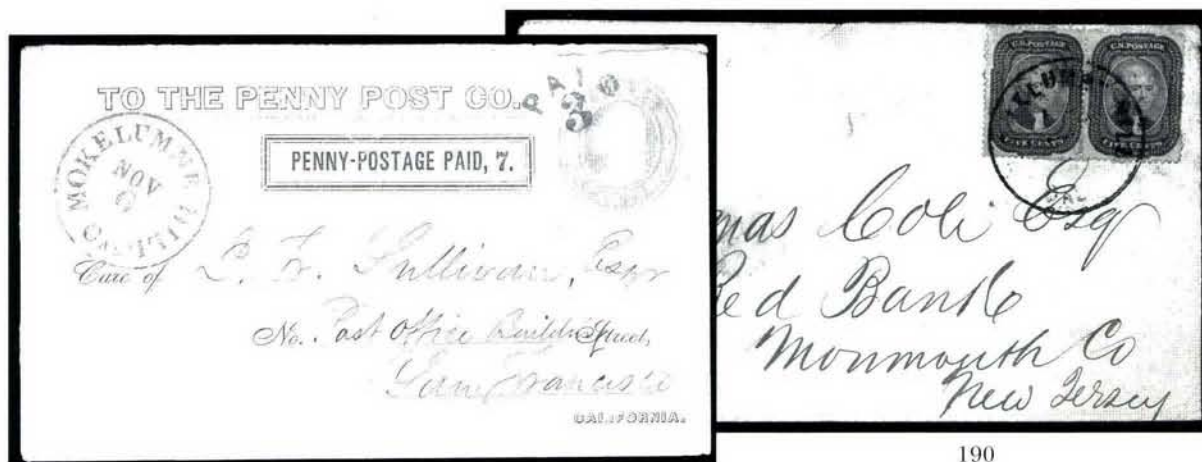 TO THE PENNY POST CO.
PAID
3
PENNY-POSTAGE PAID, 7.
MOKELUMNE HILL CAL
NOV
2
Care of L. Fr. Sullivan, Esqr
No. Post Office Building Street,
San Francisco
CALIFORNIA.
U.S. POSTAGE
U.S. POSTAGE
FIVE CENTS
FIVE CENTS
CAL
mas Cole Esq
Red Bank
Monmouth Co
New Jersey
190